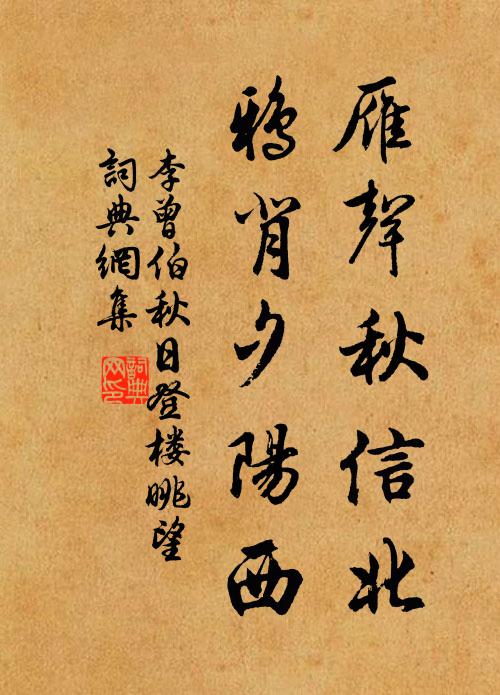 雁聲秋信北
鴉背夕陽西
李曾伯秋日登楼眺望
詞典網集
詞典网印